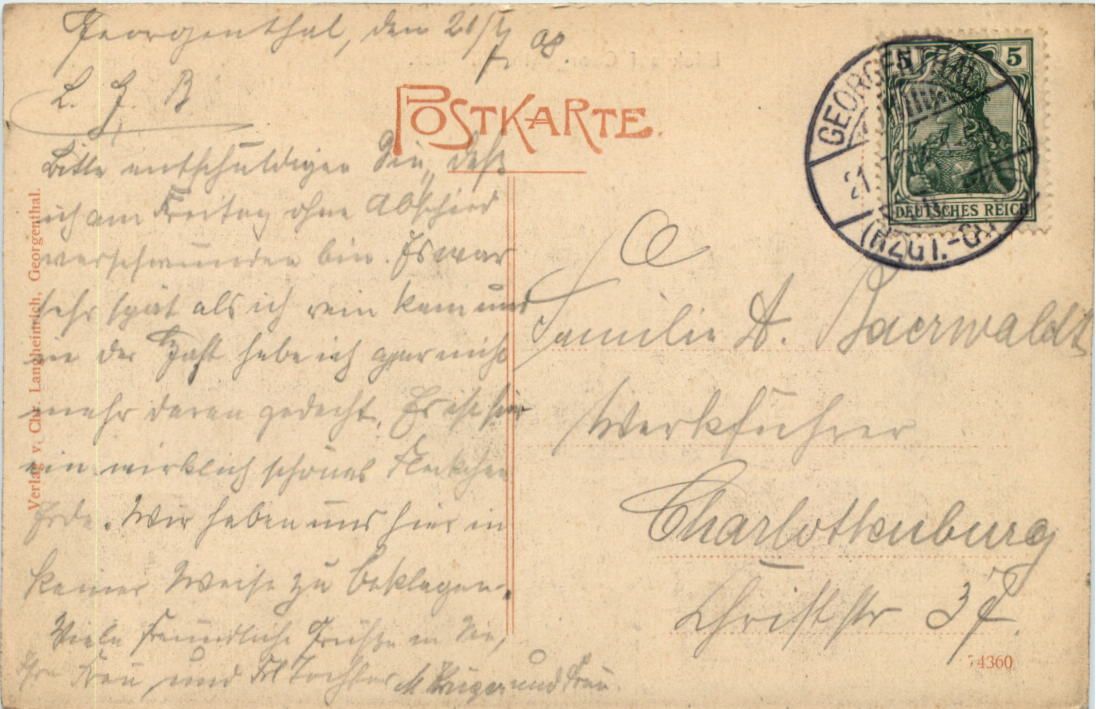 Georgenthal, den 21/7. 08
L. F. B
POSTKARTE.
Bitte entschuldigen Sie, daß
ich am Freitag ohne Abschied
verschwunden bin. Es war
sehr spät als ich rein kam und
in der Hast habe ich gar nicht
mehr daran gedacht. Es ist hier
ein wirklich schönes Fleckchen
Erde. Wir haben uns hier in
keiner Weise zu beklagen.
Viele freundliche Grüße an Sie,
Ihre Frau, und Frl Tochter M Krüger und Frau.
Verlag v. Chr. Langheinrich, Georgenthal.
5 5
DEUTSCHES REICH
GEORGENTHAL
21
(HZGT.-G.)
Familie A. Baerwaldt
Werkführer
Charlottenburg
Christstr 37.
4360